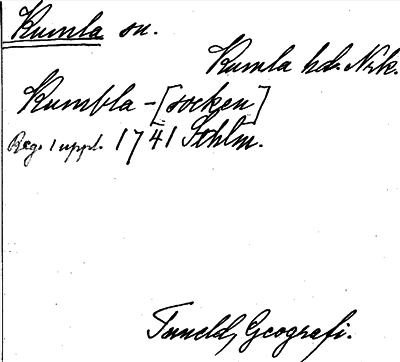 Kumla sn.
Kumla hd. Nrk.
Kumbla - [socken]
Reg. 1 uppl. 1741 Sthlm.
Tuneld, Geografi.